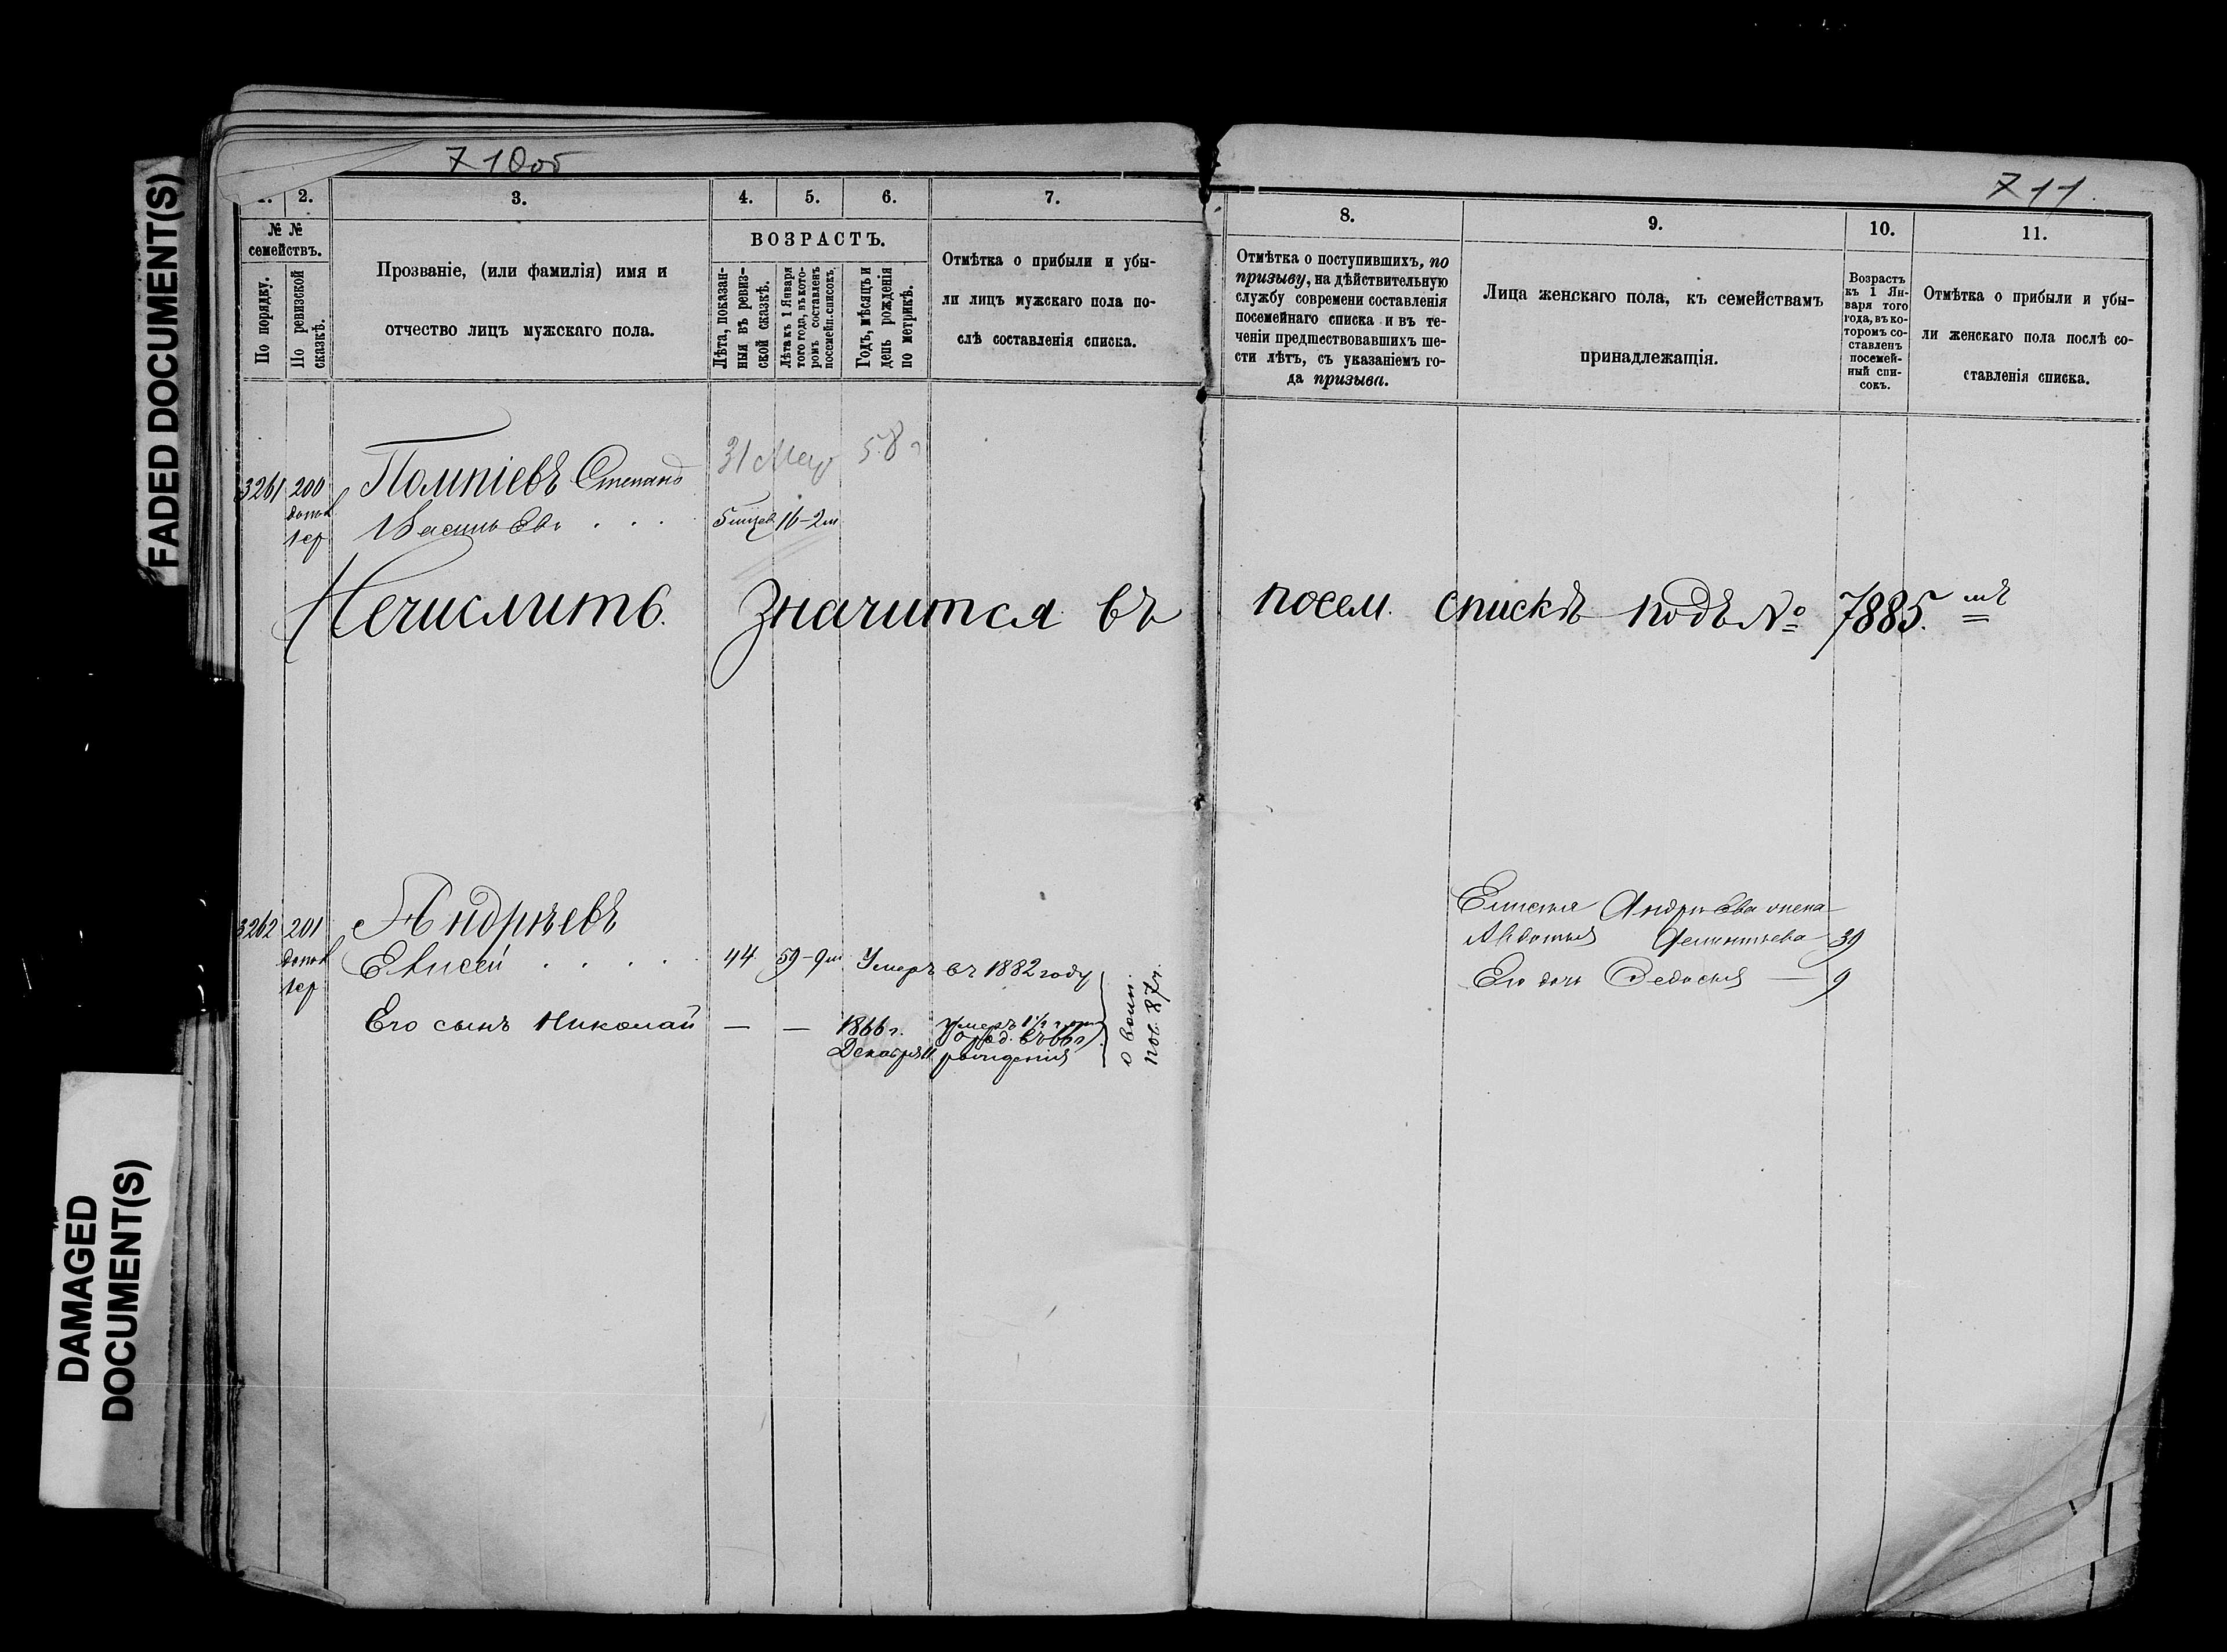 FADED DOCUMENT(S)
DAMAGED
DOCUMENT(S)
710об
711.
1. 2. 3. 4. 5. 6. 7.
№ №
семействъ.
По порядку.
По ревизской
сказкѣ.
Прозваніе, (или фамилія) имя и
отчество лицъ мужскаго пола.
ВОЗРАСТЪ.
Лѣта, показан-
ныя въ ревиз-
ской сказкѣ.
Лѣта къ 1 Января
того года, въ кото-
ромъ составленъ
посемейн. списокъ.
Годъ, мѣсяцъ и
день рожденія
по метрикѣ.
Отмѣтка о прибыли и убы-
ли лицъ мужскаго пола по-
слѣ составленія списка.
8. 9. 10. 11.
Отмѣтка о поступившихъ, по
призыву, на дѣйствительную
службу современи составленія
посемейнаго списка и въ те-
ченіи предшествовавшихъ ше-
сти лѣтъ, съ указаніемъ го-
да призыва.
Лица женскаго пола, къ семействамъ
принадлежащія.
Возрастъ
къ 1 Ян-
варя того
года, въ ко-
торомъ со-
ставленъ
посемей-
ный спи-
сокъ.
Отмѣтка о прибыли и убы-
ли женскаго пола послѣ со-
ставленія списка.
31 58
3261 200 Степанъ
Васильевъ . . . 16-2м
Нечислить. Значится въ посем. спискѣ подъ № 7885.мъ
3262 201 Андреевъ
Елисей . . . . 44 59-9м Умеръ въ 1882 году
Его сынъ Николай — — 1866 г. Умеръ
Декабря рожденія
87 г.
Елисея Андреева жена
Авдотья 39
Его дочь Федосья — 9